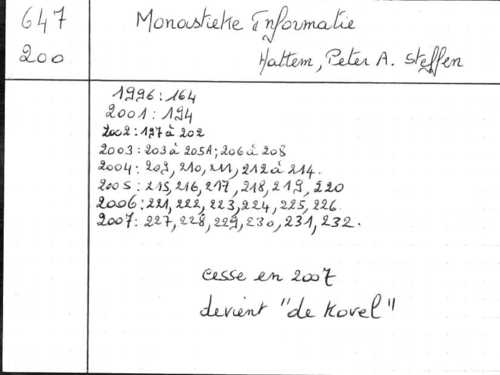 647 Monastieke Informatie
200 Hattem, Peter A. Steffen
1996 : 164
2001 : 194
2002 : 197 à 202
2003 : 203 à 205A ; 206 à 208
2004 : 209, 210, 211, 212 à 214.
2005 : 215, 216, 217, 218, 219, 220
2006 : 221, 222, 223, 224, 225, 226
2007 : 227, 228, 229, 230, 231, 232.
cesse en 2007
devient "de Kovel"